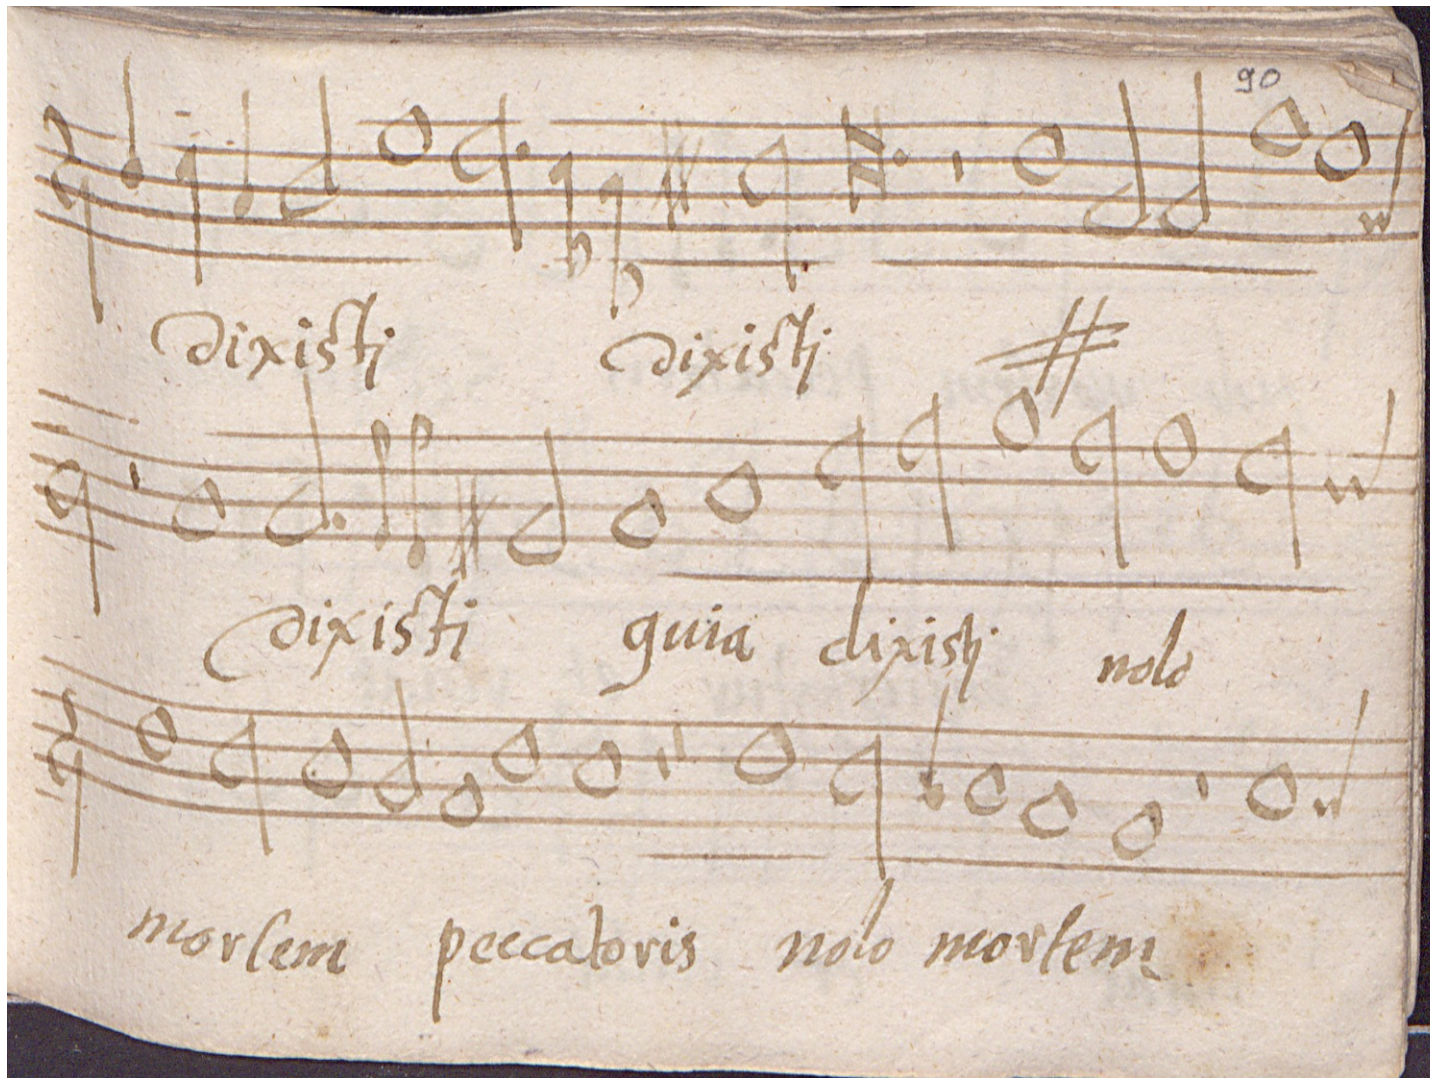 90
dixisti dixisti
dixisti quia dixisti nolo
mortem peccatoris nolo mortem